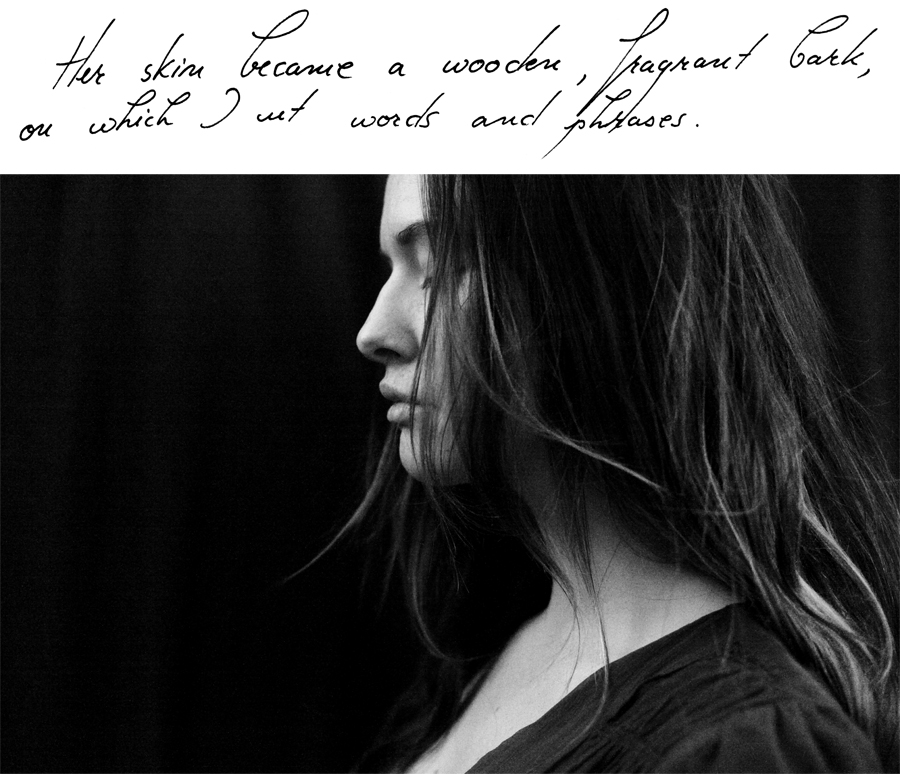 Her skin became a wooden, fragrant bark,
on which I cut words and phrases.